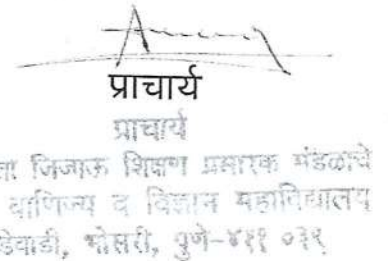 प्राचार्य
प्राचार्य
ता जिजाऊ शिक्षण प्रसारक मंडळाचे
वाणिज्य व विज्ञान महाविद्यालय
डेवाडी, भोसरी, पुणे-४११ ०३९